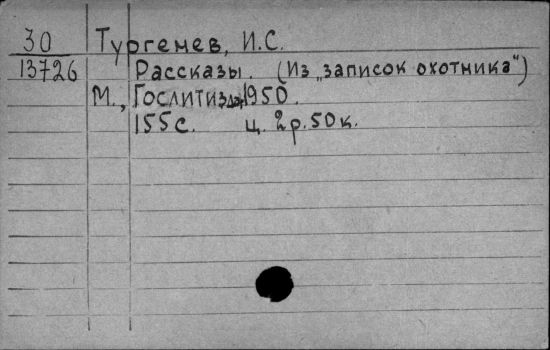 30 Тургенев, И.С.
13726 Рассказы. (Из „записок охотника“)
М., Гослитиздат, 1950.
155с. ц. 2р.50к.